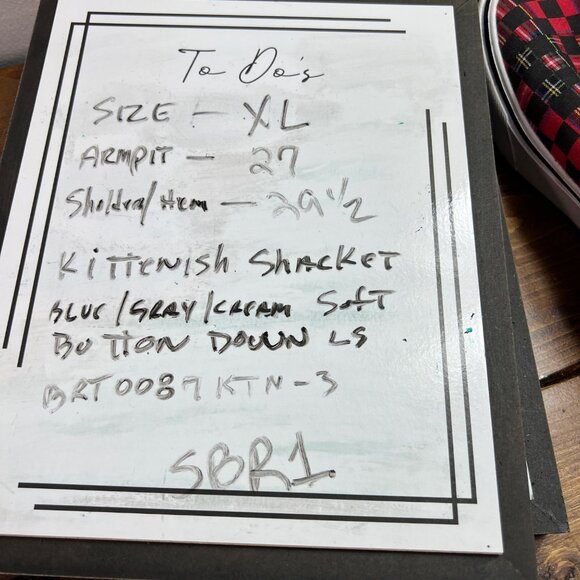 To Do's
SIZE - XL
ARMPIT - 27
Sholdra/Hem - 29 1/2
KiTTENiSH SHACKET
BLUE/GRAY/CREAM SoFT
BUTTON DOWN LS
BRT0087KTN-3
SBR1